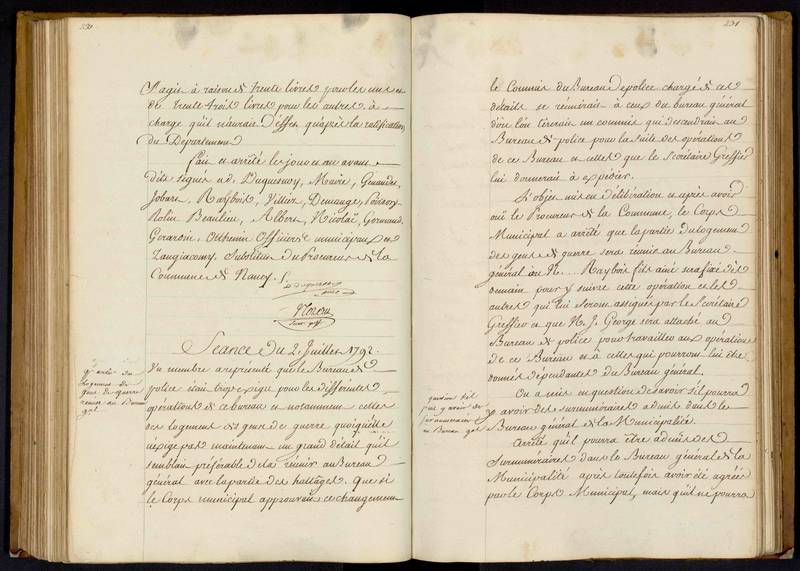 230
S'agis à raison de trente livres pour les uns et
de trente trois livres pour les autres à
charge qu'il n'aurait d'effet qu'après la ratification
du Département
Fait et arrêté les jour et an avant
dits signés a.d. Duquesnoy, Maire, Genaudet,
Jobart, Raybois, Villier, Demange, Poirson
Rolin Beaulieu, Albert, Nicolaï, Gormand
Gerardin, Othenin Officiers municipaux et
Zangiacomy, Substitut du Procureur de la
Commune de Nancy.
Séance du 2. Juillet 1792.
Un membre a représenté que le Bureau de
police était trop exigu pour les différentes
opérations de ce bureau et notamment celles
des logement des gens de guerre quoiqu'elle
n'exige pas maintenant un grand détail qu'il
semblait préférable de la réunir au Bureau
général avec la partie des hattages. Que si
le Corps municipal approuvait ce changement
logemens de
gens de guerre
réunie au Bureau
gal
231
le Commis du Bureau de police chargé de ces
détails se réunirait à ceux du bureau général
d'où l'on tirerait un commis qui descendrait au
Bureau de police pour la suite des opérations
de ce Bureau et celles que le Secrétaire Greffier
lui donnerait à expédier.
L'objet mis en délibération et après avoir
ouï le Procureur de la Commune, le Corps
Municipal a arrêté que la partie du logement
des gens de guerre sera réunie au Bureau
général où Mr. Raybois fils ainé sera fixé dès
demain pour y suivre cette opération et les
autres qui lui seront assignées par le Secrétaire
Greffier et que M. J. George sera attaché au
Bureau de police pour travailler aux opérations
de ce Bureau et à celles qui pourront lui être
données dépendantes du Bureau général.
On a mis en question de savoir s'il pourra
y avoir des surnuméraires admis dans le
Bureau général de la Municipalité.
Arrêté qu'il pourra être admis des
Surnuméraires dans le Bureau général de la
Municipalité après toutefois avoir été agréés
par le Corps Municipal, mais qu'il ne pourra
question s'il
peut y avoir des
surnuméraires
au Bureau gal